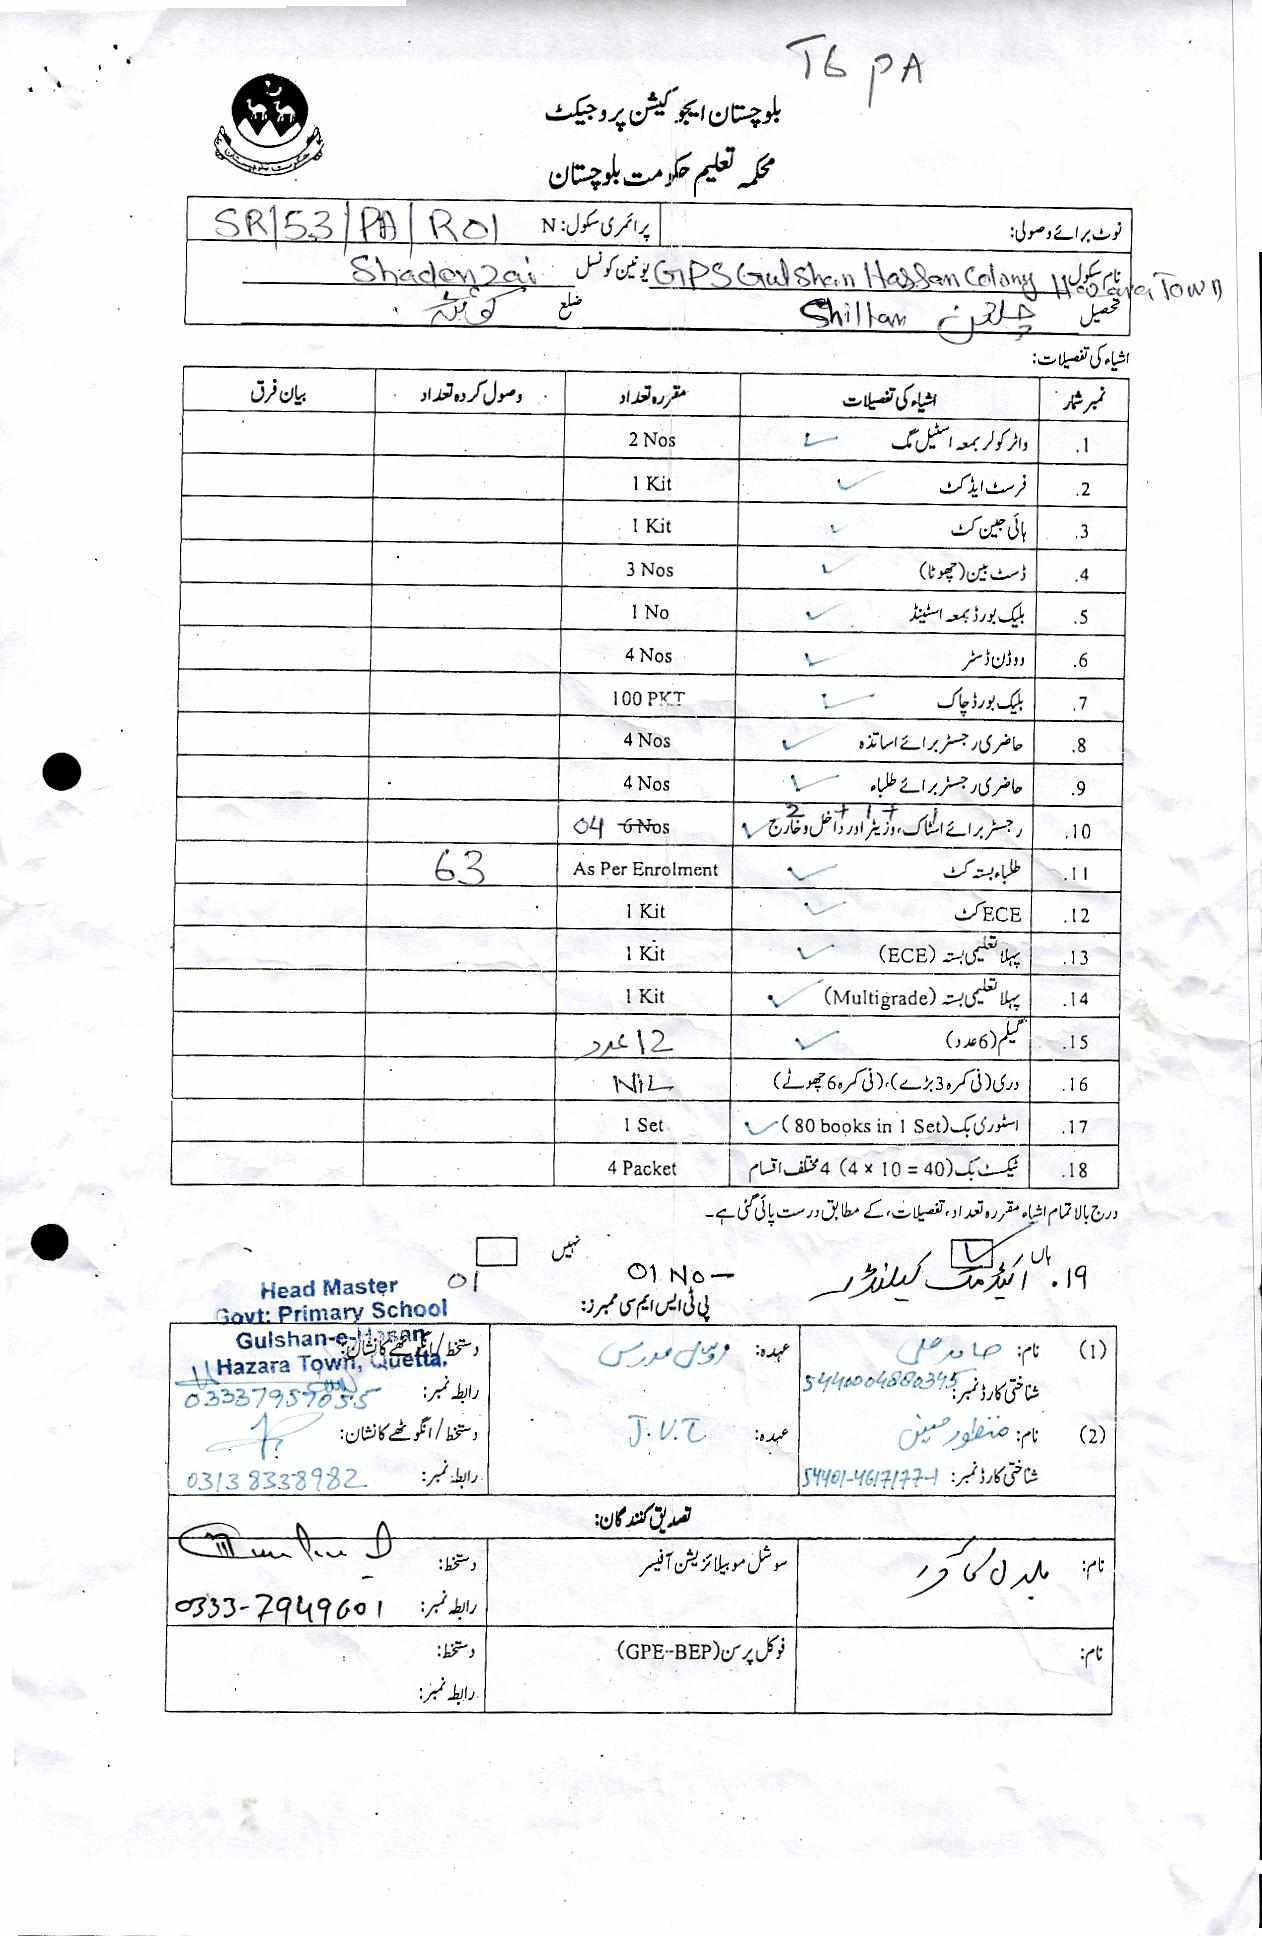 T6 PA
بلوچستان ایجوکیشن پروجیکٹ
محکمہ تعلیم حکومت بلوچستان
حکومت بلوچستان
نوٹ برائے وصولی: پرائمری سکول: N SR/53/PA/R01
نام سکول GPS Gulshan Hassan Colony Hazara Town یونین کونسل Shadenzai
تحصیل چلتن Shiltan ضلع کوئٹہ
اشیاء کی تفصیلات:
نمبر شمار اشیاء کی تفصیلات مقررہ تعداد وصول کردہ تعداد بیان فرق
1. واٹر کولر بمعہ اسٹیل مگ ✓ 2 Nos
2. فرسٹ ایڈ کٹ ✓ 1 Kit
3. ہائی جین کٹ ✓ 1 Kit
4. ڈسٹ بین (چھوٹا) ✓ 3 Nos
5. بلیک بورڈ بمعہ اسٹینڈ ✓ 1 No
6. ووڈن ڈسٹر ✓ 4 Nos
7. بلیک بورڈ چاک ✓ 100 PKT
8. حاضری رجسٹر برائے اساتذہ ✓ 4 Nos
9. حاضری رجسٹر برائے طلباء ✓ 4 Nos
2 + 1 + 1
10. رجسٹر برائے اسٹاک، وزیٹر اور داخل و خارج ✓ 04 6 Nos
11. طلباء بستہ کٹ ✓ As Per Enrolment 63
12. ECE کٹ ✓ 1 Kit
13. پہلا تعلیمی بستہ (ECE) ✓ 1 Kit
14. پہلا تعلیمی بستہ (Multigrade) ✓ 1 Kit
15. گلیم (6 عدد) ✓ 12 عدد
16. دری (فی کمرہ 3 بڑے)، (فی کمرہ 6 چھوٹے) NiL
17. اسٹوری بک (80 books in 1 Set) ✓ 1 Set
18. ٹیکسٹ بک (4 × 10 = 40) 4 مختلف اقسام 4 Packet
درج بالا تمام اشیاء مقررہ تعداد، تفصیلات، کے مطابق درست پائی گئی ہے۔
ہاں ✓ نہیں
۱۹. کیلنڈر 01 No – 01
پی ٹی ایس ایم سی ممبرز:
Head Master
Govt: Primary School
Gulshan-e-Hasan
Hazara Town, Quetta.
(1) نام: صابر علی عہدہ: مدرس دستخط/انگوٹھے کا نشان:
شناختی کارڈ نمبر: 5440004880345 رابطہ نمبر: 03337957055
(2) نام: منظور حسین عہدہ: J.V.T دستخط/انگوٹھے کا نشان:
شناختی کارڈ نمبر: 54401-4617177-1 رابطہ نمبر: 03138338982
تصدیق کنندگان:
نام: سوشل موبیلائزیشن آفیسر دستخط:
رابطہ نمبر: 0333-7949601
نام: فوکل پرسن (GPE-BEP) دستخط:
رابطہ نمبر: